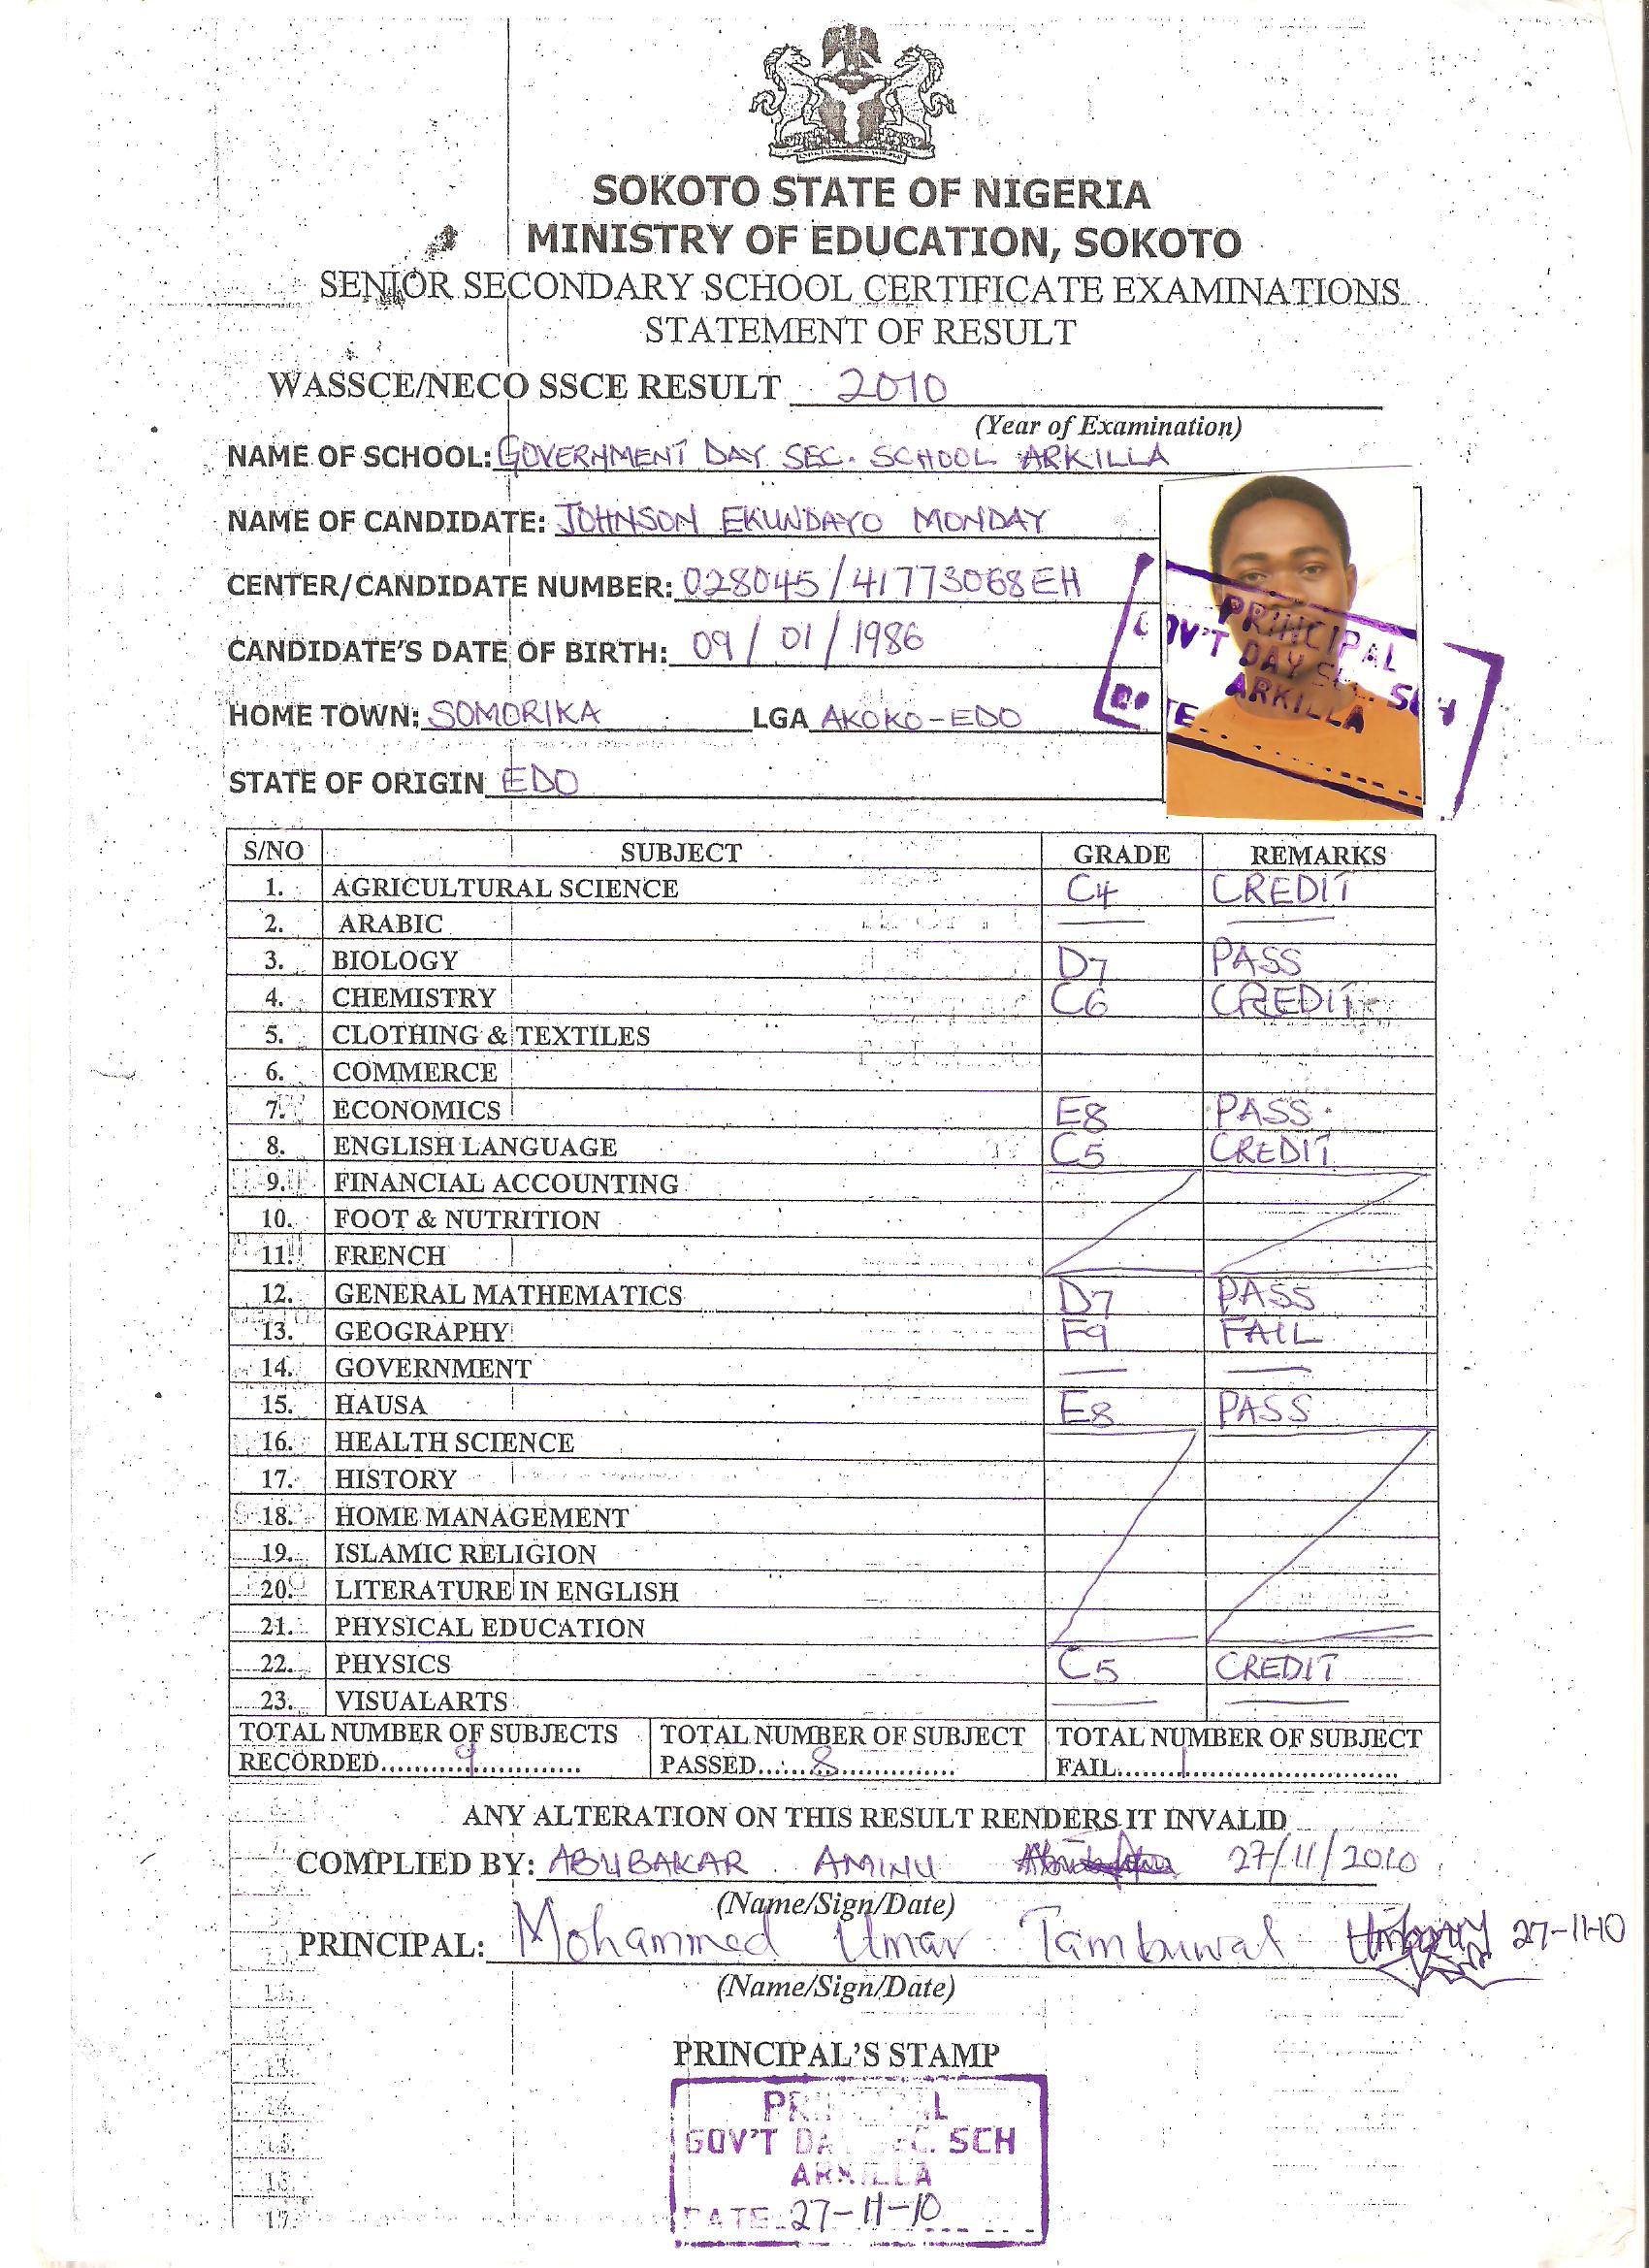 SOKOTO STATE OF NIGERIA
MINISTRY OF EDUCATION, SOKOTO
SENIOR SECONDARY SCHOOL CERTIFICATE EXAMINATIONS
STATEMENT OF RESULT
WASSCE/NECO SSCE RESULT 2010
(Year of Examination)
NAME OF SCHOOL: GOVERNMENT DAY SEC. SCHOOL ARKILLA
NAME OF CANDIDATE: JOHNSON EKUNDAYO MONDAY
CENTER/CANDIDATE NUMBER: 028045/41773068EH
CANDIDATE'S DATE OF BIRTH: 09/01/1986
HOME TOWN: SOMORIKA LGA AKOKO-EDO
STATE OF ORIGIN EDO
PRINCIPAL
GOV'T DAY SEC. SCH
ARKILLA
DATE
S/NO SUBJECT GRADE REMARKS
1. AGRICULTURAL SCIENCE C4 CREDIT
2. ARABIC
3. BIOLOGY D7 PASS
4. CHEMISTRY C6 CREDIT
5. CLOTHING & TEXTILES
6. COMMERCE
7. ECONOMICS E8 PASS
8. ENGLISH LANGUAGE C5 CREDIT
9. FINANCIAL ACCOUNTING
10. FOOT & NUTRITION
11. FRENCH
12. GENERAL MATHEMATICS D7 PASS
13. GEOGRAPHY F9 FAIL
14. GOVERNMENT
15. HAUSA E8 PASS
16. HEALTH SCIENCE
17. HISTORY
18. HOME MANAGEMENT
19. ISLAMIC RELIGION
20. LITERATURE IN ENGLISH
21. PHYSICAL EDUCATION
22. PHYSICS C5 CREDIT
23. VISUALARTS
TOTAL NUMBER OF SUBJECTS RECORDED 9
TOTAL NUMBER OF SUBJECT PASSED 8
TOTAL NUMBER OF SUBJECT FAIL 1
ANY ALTERATION ON THIS RESULT RENDERS IT INVALID
COMPLIED BY: ABUBAKAR AMINU 27/11/2010
(Name/Sign/Date)
PRINCIPAL: Mohammed Umar Tambuwal 27-11-10
(Name/Sign/Date)
PRINCIPAL'S STAMP
PRINCIPAL
GOV'T DAY SEC. SCH
ARKILLA
DATE 27-11-10